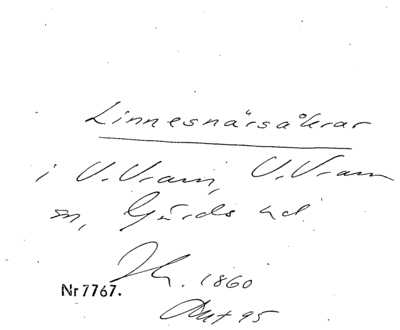 Linnesnärsåkrar
i V. Vram, V. Vram
sn, Gärds hd.
1860
Nr 7767.
95